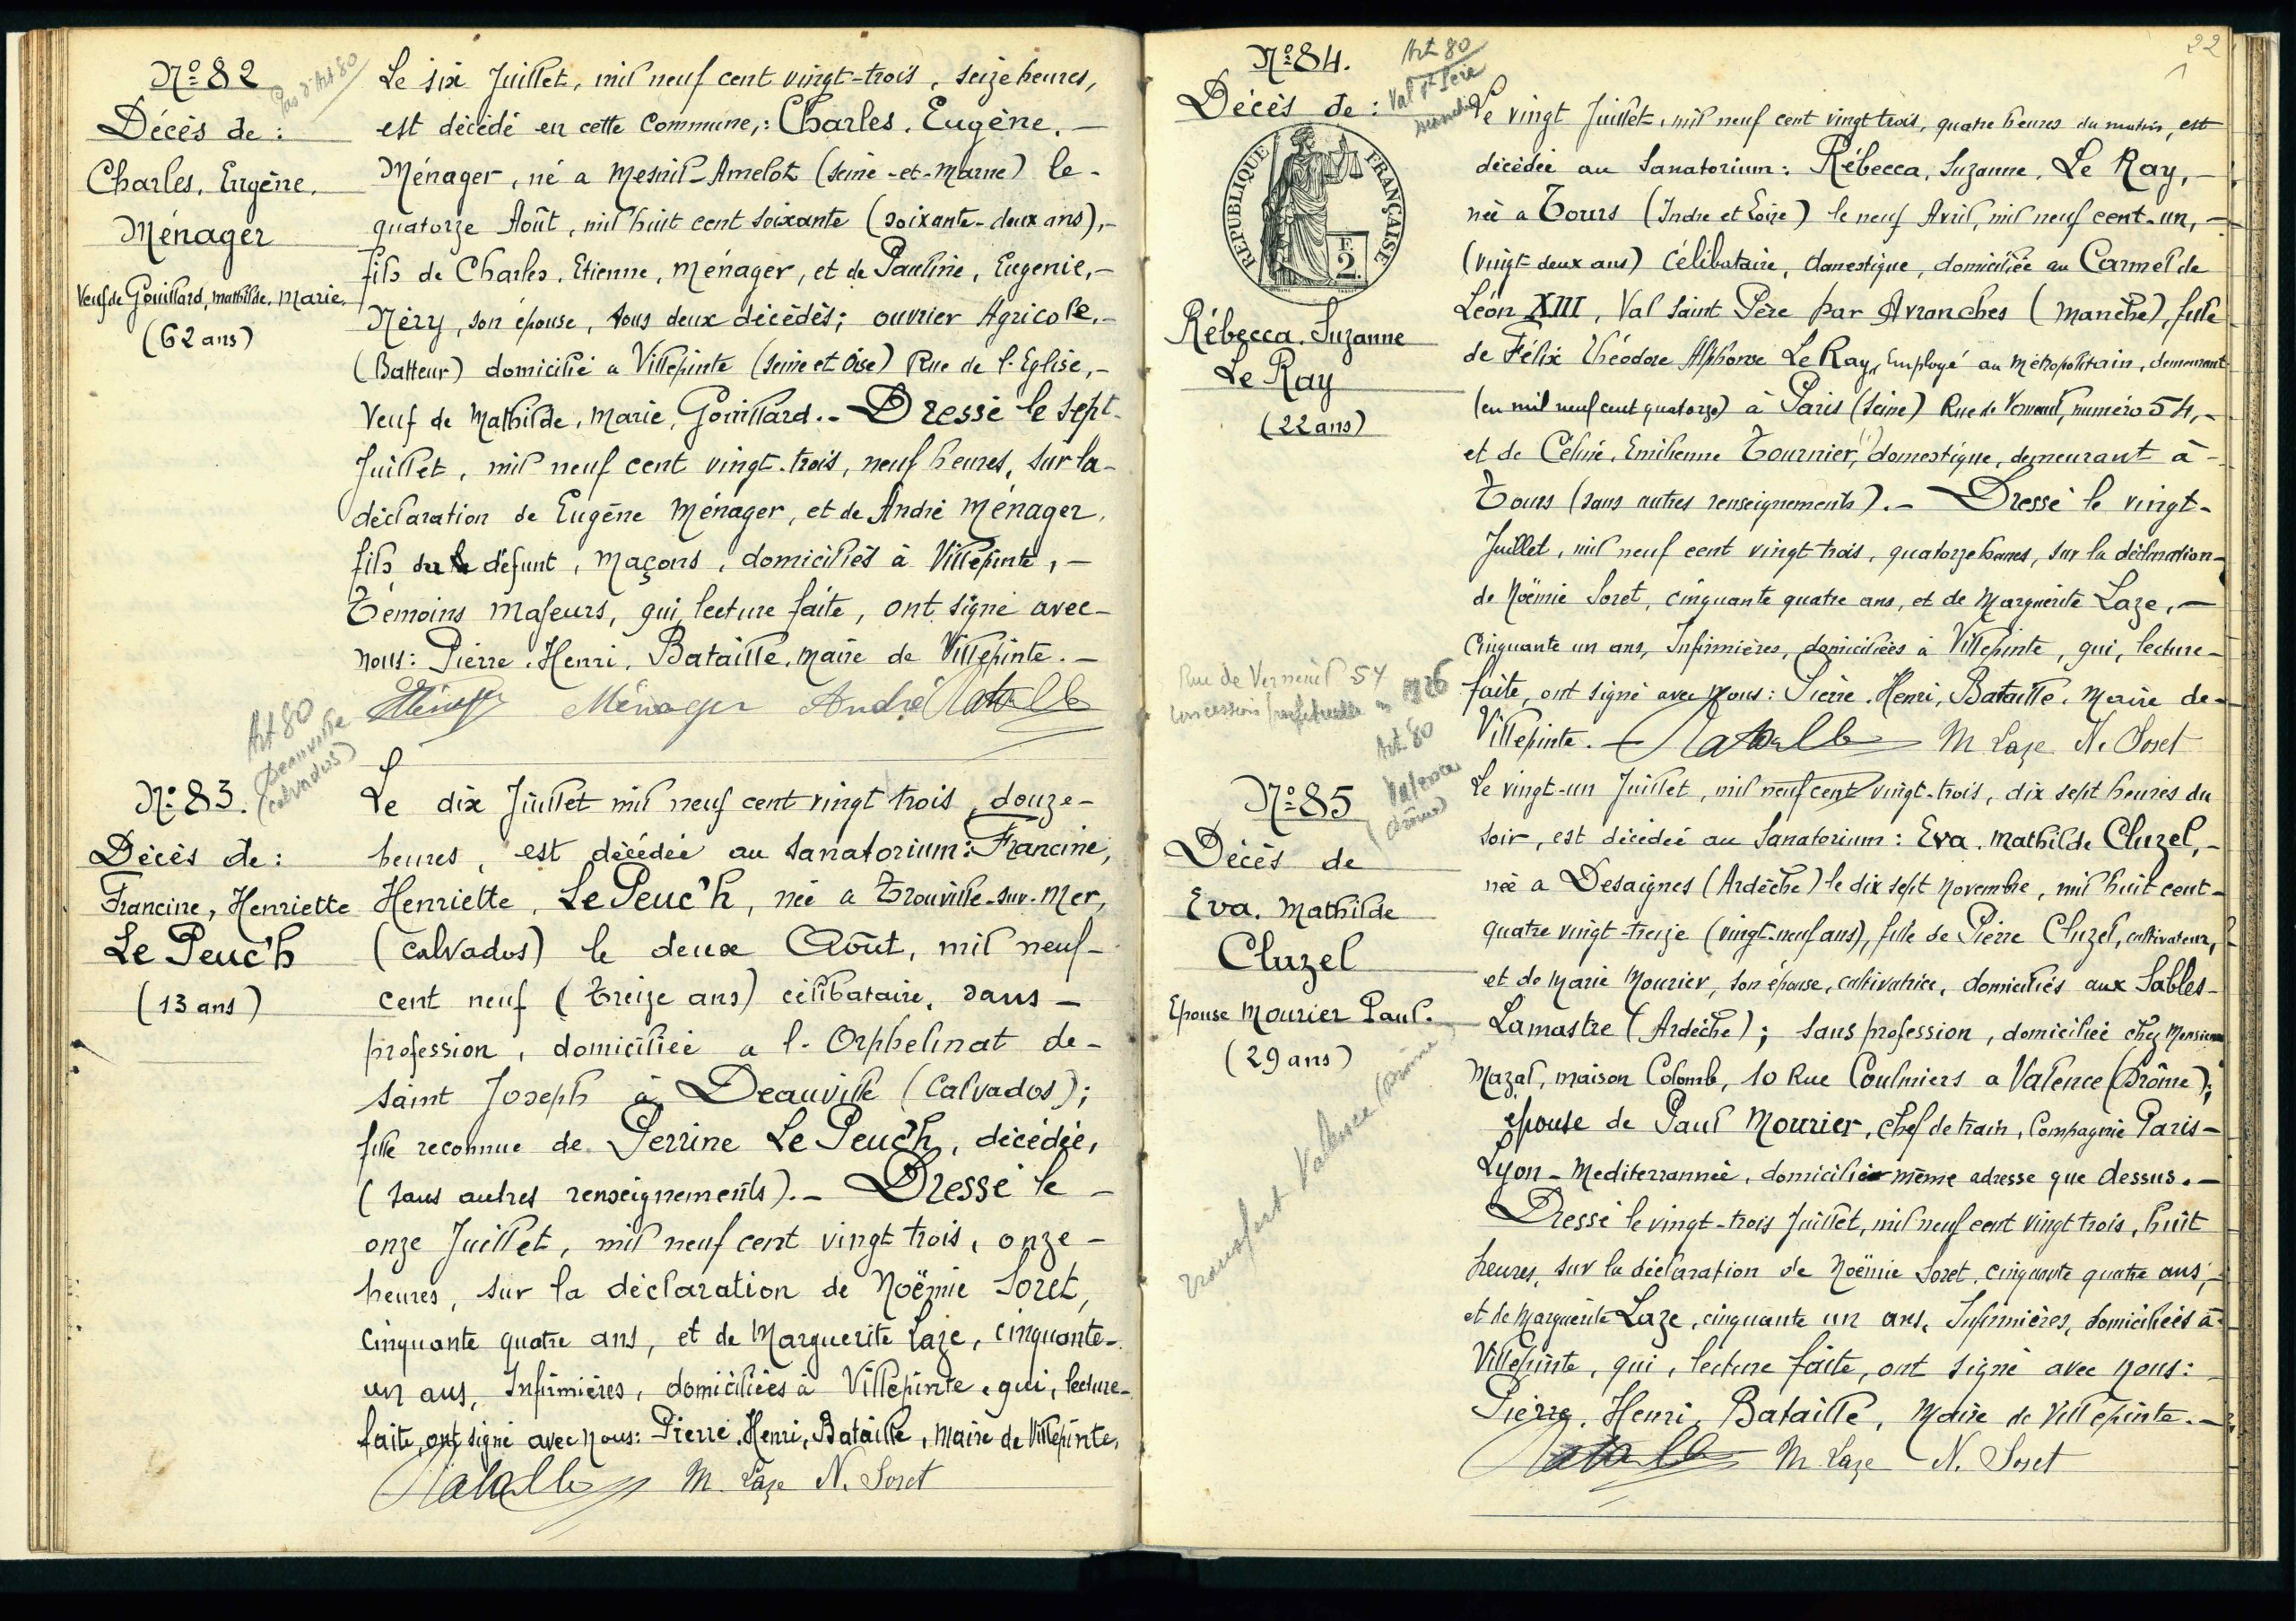 Nº 82
Pas d'Art 80
Décès de :
Charles, Eugène,
Ménager
Veuf de Gouillard, Mathilde, Marie,
(62 ans)
Le six Juillet, mil neuf cent vingt-trois, seize heures,
est décédé en cette Commune, : Charles, Eugène, —
Ménager, né a Mesnil-Amelot (Seine-et-Marne) le -
quatorze Août, mil huit cent soixante (soixante-deux ans), -
fils de Charles, Etienne, Ménager, et de Pauline, Eugenie, -
Néry, son épouse, tous deux décédés ; ouvrier Agricole, -
(Batteur) domicilié a Villepinte (Seine et Oise) Rue de l'Eglise, -
Veuf de Mathilde, Marie, Gouillard. - Dressé le sept -
Juillet, mil neuf cent vingt-trois, neuf heures, sur la -
déclaration de Eugène Ménager, et de André Ménager,
fils du défunt, Maçons, domiciliés à Villepinte, -
Témoins majeurs, qui, lecture faite, ont signé avec -
nous : Pierre, Henri, Bataille, Maire de Villepinte. -
Ménager André Bataille
Art 80
Deauville
(Calvados)
Nº 83.
Décès de :
Francine, Henriette
Le Peuc'h
(13 ans)
Le dix Juillet mil neuf cent vingt trois, douze -
heures, est décédée au Sanatorium : Francine,
Henriette, Le Peuc'h, née a Trouville-sur-Mer,
(Calvados) le deux Août, mil neuf -
cent neuf (treize ans) célibataire, sans -
profession, domiciliée a l'Orphelinat de -
Saint Joseph à Deauville (Calvados) ;
fille reconnue de Perrine Le Peuc'h, décédée,
(sans autres renseignements). - Dressé le -
onze Juillet, mil neuf cent vingt trois, onze -
heures, sur la déclaration de Noëmie Soret,
cinquante quatre ans, et de Marguerite Laze, cinquante -
un ans, Infirmières, domiciliées à Villepinte, qui, lecture -
faite, ont signé avec nous : Pierre, Henri, Bataille, Maire de Villepinte,
Bataille M. Laze N. Soret
22
Nº 84.
Art 80
Val St Père
Manche
Décès de :
RÉPUBLIQUE FRANÇAISE
2 F.
Rébecca, Suzanne
Le Ray
(22 ans)
Le vingt Juillet, mil neuf cent vingt trois, quatre heures du matin, est
décédée au Sanatorium : Rébecca, Suzanne, Le Ray, -
née a Tours (Indre et Loire) le neuf Avril, mil neuf cent-un, -
(vingt-deux ans) Célibataire, domestique, domiciliée au Carmel de
Léon XIII, Val Saint Père par Avranches (Manche), fille
de Félix Théodore Alphonse Le Ray, Employé au Métropolitain, demeurant
(en mil neuf cent quatorze) à Paris (Seine) Rue de Verneuil, numéro 54, -
et de Céline, Emilienne Tournier, domestique, demeurant à -
Tours (sans autres renseignements). - Dressé le vingt -
Juillet, mil neuf cent vingt trois, quatorze heures, sur la déclaration -
de Noëmie Soret, cinquante quatre ans, et de Marguerite Laze, -
cinquante un ans, Infirmières, domiciliées à Villepinte, qui, lecture -
faite, ont signé avec Nous : Pierre, Henri, Bataille, Maire de -
Villepinte. - Bataille M Laze N. Soret
Rue de Verneuil 54
concession perpétuelle 1926
Art 80
Valence
(Drôme)
Nº 85
Décès de
Eva, Mathilde
Cluzel
Epouse Mourier Paul.
(29 ans)
transfert Valence (Drôme)
Le vingt-un Juillet, mil neuf cent vingt-trois, dix sept heures du
soir, est décédée au Sanatorium : Eva, Mathilde Cluzel, -
née a Desaignes (Ardèche) le dix sept Novembre, mil huit cent -
quatre vingt-treize (vingt-neuf ans), fille de Pierre Cluzel, cultivateur,
et de Marie Mourier, son épouse, cultivatrice, domiciliés aux Sables -
Lamastre (Ardèche) ; sans profession, domiciliée chez Monsieur
Mazal, maison Colomb, 10 Rue Coulmiers a Valence (Drôme) ;
épouse de Paul Mourier, Chef de train, Compagnie Paris -
Lyon - Mediterrannée, domicilié même adresse que dessus. -
Dressé le vingt-trois Juillet, mil neuf cent vingt trois, huit
heures, sur la déclaration de Noëmie Soret, cinquante quatre ans, -
et de Marguerite Laze, cinquante un ans, Infirmières, domiciliées à -
Villepinte, qui, lecture faite, ont signé avec nous :
Pierre, Henri, Bataille, Maire de Villepinte. -
Bataille M Laze N. Soret